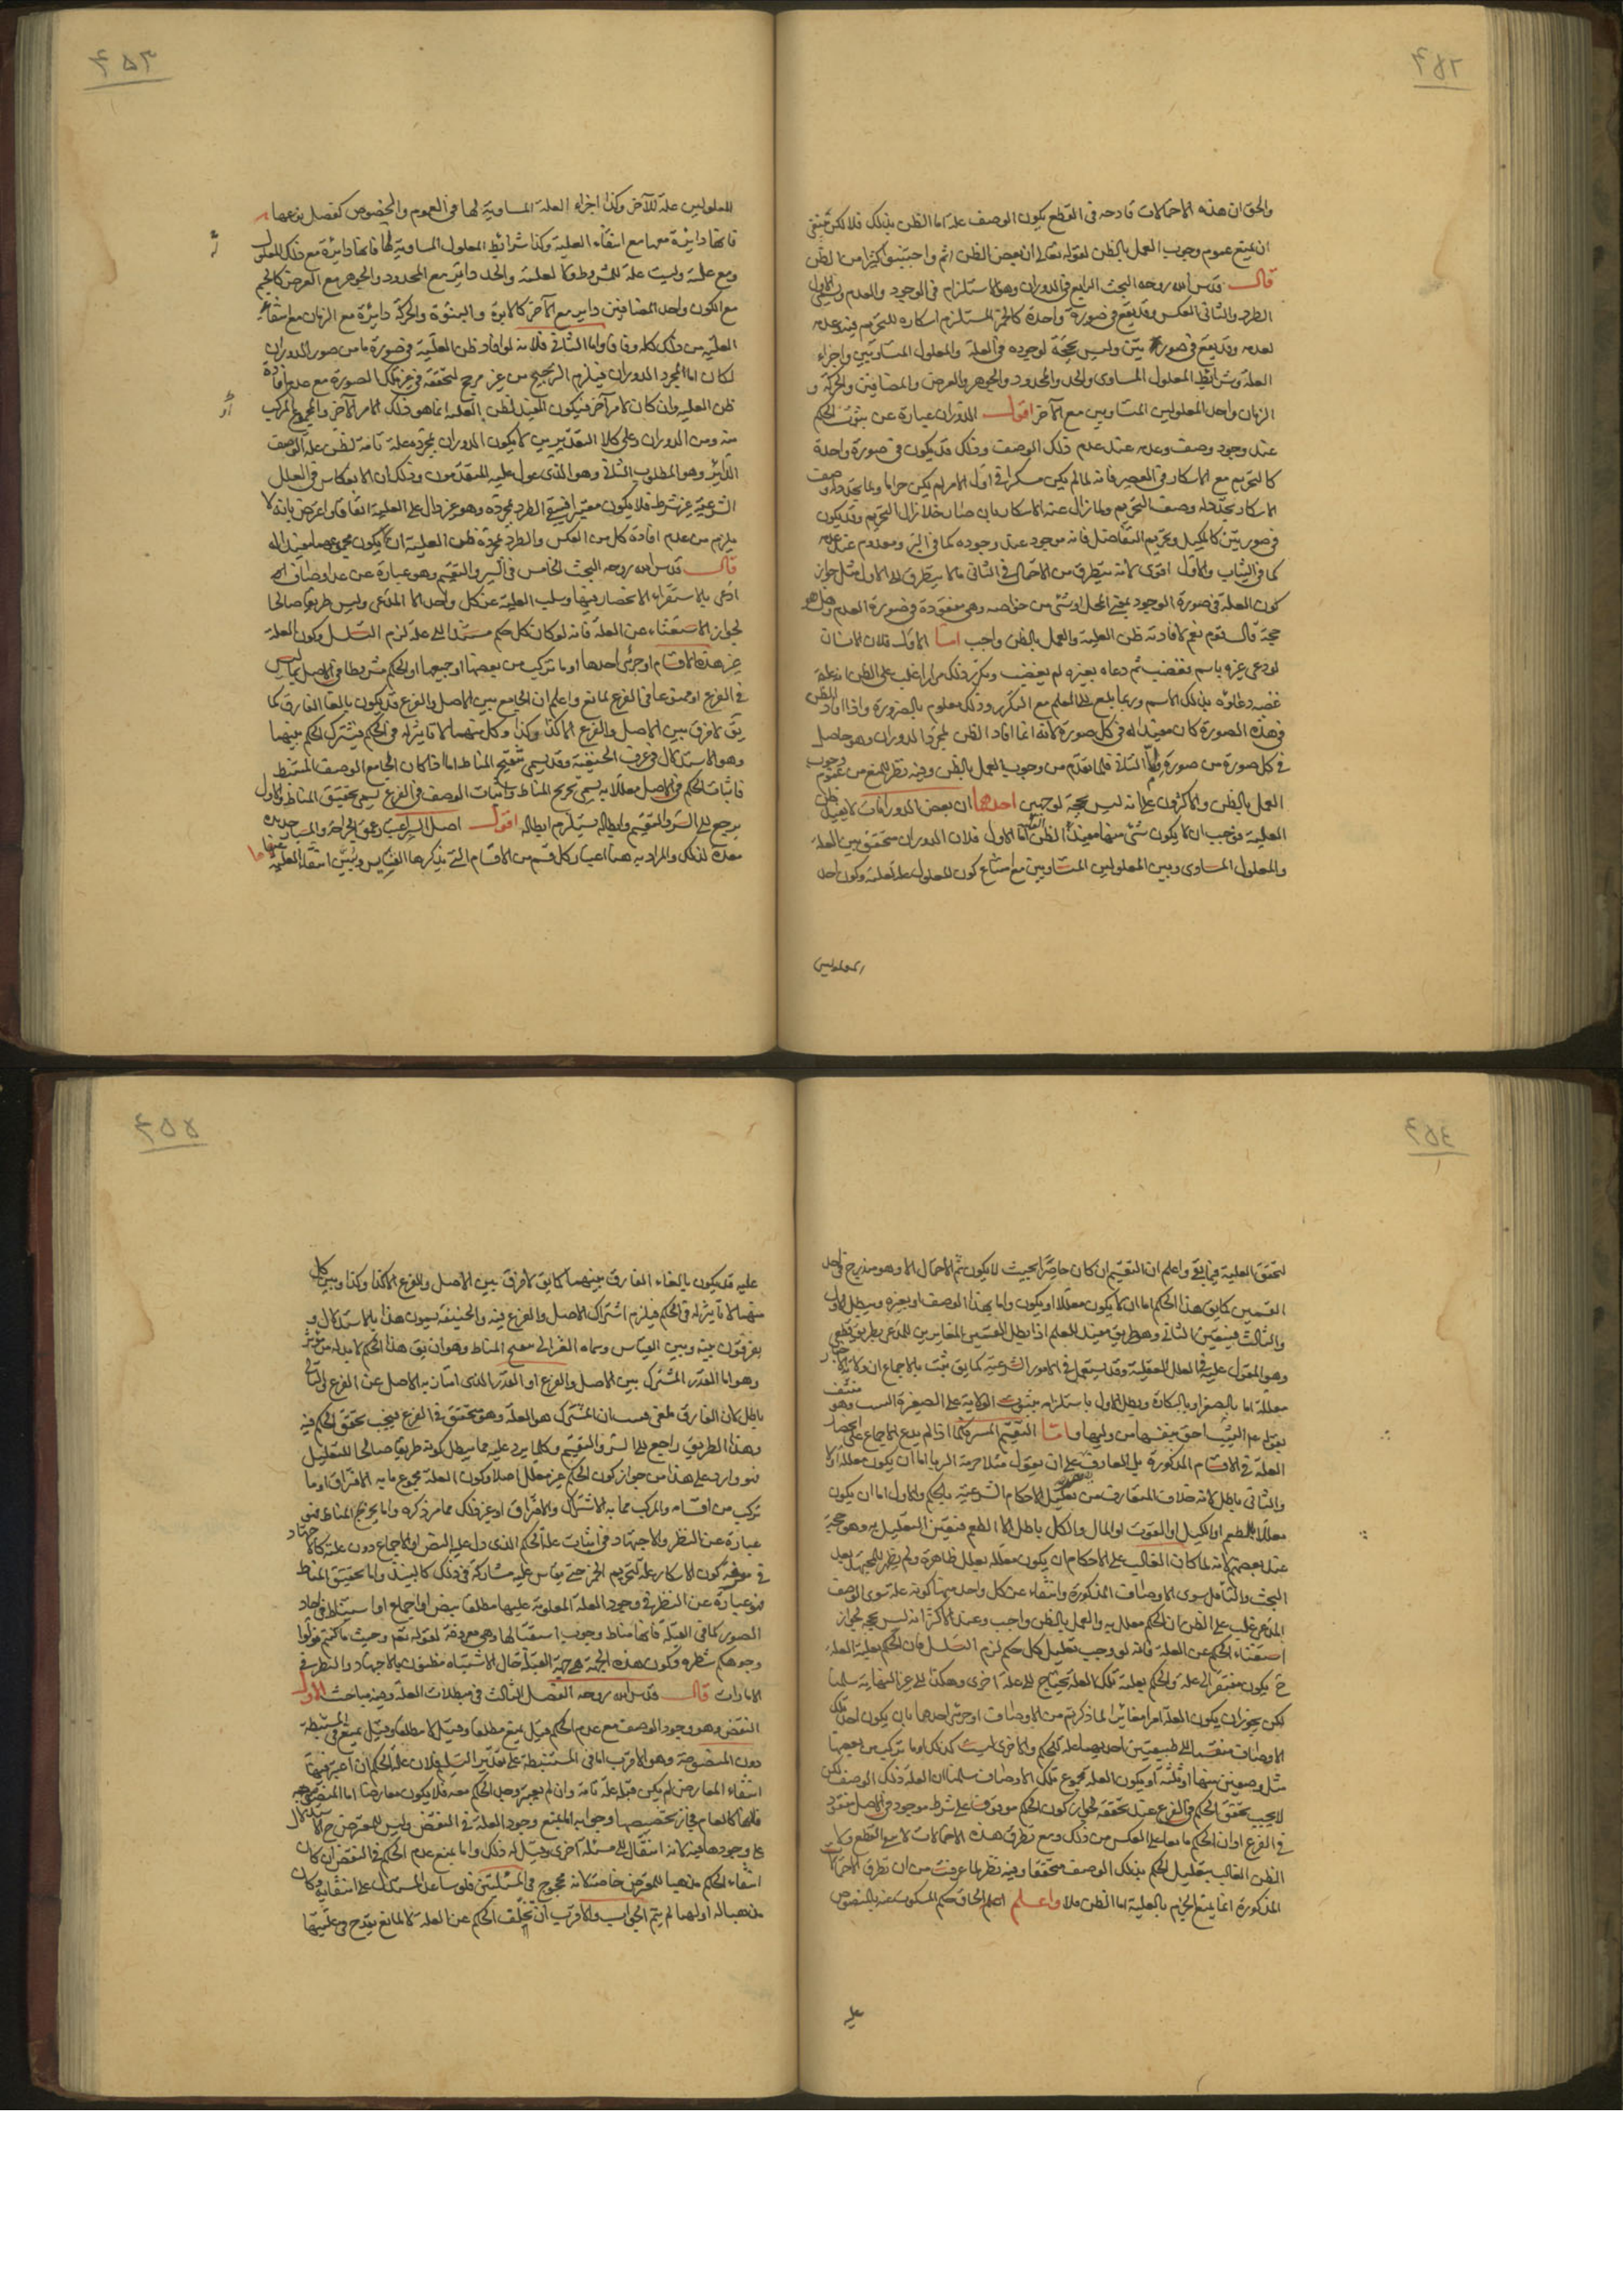 والحق ان هذه الاحتمالات قادحه فى القطع بكون الوصف علة اما الظن بذلك فلا لكن
ان يمنع عموم وجوب العمل بالظن لقوله تعالى ان بعض الظن اثم واجتنبوا كثيرا من الظن
قال قدس الله روحه البحث الرابع فى الدوران وهو الاستلزام فى الوجود والعدم ويسمى الاول
الطرد والثانى العكس وقد يقع فى صورة واحدة كالخمر المستلزم اسكاره للتحريم فيه وعدمه
لعدمه وقد يقع فى صورتين وليس بحجة لوجوده فى العلة والمعلول المتساويين واجزاء
العلة وشرائط المعلول المساوى والحد والمحدود والجوهر والعرض والمضافين والحركة و
الزمان واحد المعلولين المتساويين مع الآخر اقول الدوران عبارة عن ثبوت الحكم
عند وجود وصف وعدمه عند عدم ذلك الوصف وذلك قد يكون فى صورة واحدة
كالتحريم مع الاسكار فى العصير فانه لما لم يكن مسكرا فى اول الامر لم يكن حراما ولما تجدد له وصف
الاسكار تجدد له وصف التحريم ولما زال عنه الاسكار بان صار خلا زال التحريم وقد يكون
فى صورتين كالكيل وتحريم التفاضل فانه موجود عند وجوده كما فى البر ومعدوم عند عدمه
كما فى الثياب والاول اقوى لانه يتطرق من الاحتمال فى الثانى ما لا يتطرق الى الاول مثل جواز
كون العلة فى صورة الوجود تعين المحل او شئ من خواصه وهى مفقودة فى صورة العدم وهل هو
حجة قال قوم نعم لافادته ظن العلية والعمل بالظن واجب اما الاول فلان الانسان
لو دعى غيره باسم فغضب ثم دعاه بغيره لم يغضب وتكرر ذلك مرارا غلب على الظن ان علة
غضبه دعاؤه بذلك الاسم وربما بلغ الى العلم مع التكرر وذلك معلوم بالضرورة واذا افاد الظن
فى هذه الصورة كان مفيدا له فى كل صورة لانه انما افاد الظن لمجرد الدوران وهو حاصل
فى كل صورة من صوره واما الثانى فلما تقدم من وجوب العمل بالظن وفيه نظر للمنع من عموم وجوب
العمل بالظن والاكثرون على انه ليس بحجة لوجهين احدهما ان بعض الدورانات لا يفيد ظن
العلية فوجب ان لا يكون شئ منها مفيدا لظن العلية اما الاول فلان الدوران متحقق بين العلة
والمعلول المساوى وبين المعلولين المتساويين مع امتناع كون المعلول علة لعلته وكون احد
المعلولين
المعلولين علة للآخر وكذا اجزاء العلة المساوية لها فى العموم والخصوص كفصل نوعها
فانها دائرة معها مع انتفاء العلية وكذا شرائط المعلول المساوية لها فانها دائرة مع ذلك المعلول
ومع علته وليست علة للمشروط ولا لعلته والحد دائر مع المحدود والجوهر مع العرض كالجسم
مع الكون واحد المضافين دائر مع الآخر كالابوة والبنوة والحركة دائرة مع الزمان مع انتفاء
العلية من ذلك كله وفاقا واما الثانى فلانه لو افاد ظن العلية فى صورة ما من صور الدوران
لكان اما لمجرد الدوران فيلزم الترجيح من غير مرجح لتحققه فى غير تلك الصورة مع عدم افادة
ظن العلية وان كان لامر آخر فيكون المفيد لظن العلية انما هو ذلك الامر الآخر او المجموع المركب
منه ومن الدوران وعلى كلا التقديرين لا يكون الدوران بمجرده علة تامة لظن علة الوصف
الدائر وهو المطلوب الثانى وهو الذى عول عليه المتقدمون وذلك ان الانعكاس فى العلل
الشرعية غير شرط فلا يكون معتبرا فبقى الطرد بمجرده وهو غير دال على العلية اتفاقا واعترض بانه لا
يلزم من عدم افادة كل من العكس والطرد بمجرده ظن العلية ان لا يكون مجموعهما مفيدا له
قال قدس الله روحه البحث الخامس فى السبر والتقسيم وهو عبارة عن عد اوصاف
ادعى بالاستقراء الانحصار فيها وسلب العلية عن كل واحد الا المدعى وليس طريقا صالحا
لجواز الاستغناء عن العلة فانه لو كان كل حكم مستندا الى علة لزم التسلسل وكون العلة
غير هذه الاقسام او جزئى احدها او ما تركب من بعضها او جميعها او الحكم مشروطا فى الاصل بما ليس
فى الفرع او ممنوعا فى الفرع لمانع واعلم ان الجامع بين الاصل والفرع قد يكون بالغاء الفارق كما
يق لا فرق بين الاصل والفرع الا كذا وكذا وكل منهما لا تاثير له فى الحكم فيشترك الحكم بينهما
وهو الاستدلال فى عرف الحنفية وقد يسمى تنقيح المناط اما اذا كان الجامع الوصف المستنبط
فاثبات الحكم فى الاصل معللا به يسمى تخريج المناط واثبات الوصف فى الفرع يسمى تحقيق المناط والاول
يرجع الى السبر والتقسيم وابطاله يستلزم ابطاله اقول اصل السبر اعتبار عمق الجراحة والمسبار حديدة
معدة لذلك والمراد به هنا اعتبار كل قسم من الاقسام التى يذكرها القياس ويبين انتفاء العلية عنها
لتحقق العلية فيما بقى واعلم ان التقسيم ان كان حاصرا بحيث لا يكون ثم احتمال الا وهو مندرج فى احد
القسمين كما يق هذا الحكم اما ان لا يكون معللا او يكون واما بهذا الوصف او بغيره ويبطل الاول
والثالث فيتعين الثانى وهو طريق مفيد للعلم اذا بطل القسمين المغايرين للمدعى بطريق قطعى
وهو المعول عليه فى العلل العقلية وقد يستعمل فى الامور الشرعية كما يق ثبت بالاجماع ان ولاية الاجبار
معللة اما بالصغر او بالبكارة ويبطل الاول باستلزامه ثبوت الولاية على الصغيرة الثيب وهو منتف
بقوله عم الثيب احق بنفسها من وليها واما التقسيم المنتشر كما اذا لم يدع الاجماع على انحصار
العلة فى الاقسام المذكورة بل المعارف على ان يقول مثلا حرمة الربا اما ان يكون معللة اولا
والثانى باطل لانه خلاف المتعارف من تعليل الاحكام الشرعية بالحكم والاول اما ان يكون
معللا بالطعم او الكيل او القوت او المال والكل باطل الا الطعم فتعين التعليل به وهو حجة
عند بعضهم لانه لما كان الغالب على الاحكام ان يكون معللة بعلل ظاهرة ولم يظهر للمجتهد بعد
البحث والتامل سوى الاوصاف المذكورة وانتفاء عن كل واحد منها كونه علة سوى الوصف
المدعى غلب على الظن ان الحكم معلل به والعمل بالظن واجب وعند الاكثر انه ليس بحجة لجواز
استغناء الحكم عن العلة فانه لو وجب تعليل كل حكم لزم التسلسل فان الحكم بعلية العلة
ح يكون مفتقرا الى علة والحكم بعلية تلك العلة يحتاج الى علة اخرى وهكذا الى غير النهاية سلمنا
لكن يجوز ان يكون العلة امرا مغايرا لما ذكرتم من الاوصاف او جزئى احدها بان يكون احد تلك
الاوصاف منقسما الى طبيعتين احديهما علة للحكم والاخرى ليست كذلك او ما تركب من بعضها
مثل وصفين منها او ثلثة او يكون العلة مجموع تلك الاوصاف سلمنا ان العلة ذلك الوصف لكن
لا يجب تحقق الحكم فى الفرع عند تحققه لجواز كون الحكم موقوفا على شرط موجود فى الاصل مفقود
فى الفرع او ان الحكم مانعا على العكس من ذلك ومع تطرق هذه الاحتمالات لا يبقى القطع ولا
الظن الغالب بتعليل الحكم بذلك الوصف متحققا وفيه نظر لما عرفت من ان تطرق الاحتمالات
المذكورة انما يمنع الجزم بالعلية اما الظن فلا واعلم ان الحاق حكم المسكوت عنه بالمنصوص
عليه
عليه قد يكون بالغاء الفارق بينهما كما يق لا فرق بين الاصل والفرع الا كذا وكذا ويبين كل
منهما لا تاثير له فى الحكم فيلزم اشتراك الاصل والفرع فيه والحنفية يسمون هذا بالاستدلال و
يفرقون بينه وبين القياس وسماه الغزالى تنقيح المناط وهو ان يق هذا الحكم لا بد له من مؤثر
وهو اما القدر المشترك بين الاصل والفرع او القدر الذى امتاز به الاصل عن الفرع والثانى
باطل لان الفارق ملغى فثبت ان المشترك هو العلة وهو متحقق فى الفرع فيجب تحقق الحكم فيه
وهذا الطريق راجع الى السبر والتقسيم وكلما يرد عليه مما يبطل كونه طريقا صالحا للتعليل
فهو وارد على هذا من جواز كون الحكم غير معلل اصلا وكون العلة مجموع ما به الافتراق او ما
تركب من اقسامه والمركب مما به الاشتراك والافتراق او غير ذلك مما مر ذكره واما تخريج المناط فهو
عبارة عن النظر والاجتهاد فى اثبات علة الحكم الذى دل عليه النص او الاجماع دون علته كالاجتهاد
فى معرفة كون الاسكار علة لتحريم الخمر حتى يقاس عليه مشاركه فى ذلك كالنبيذ واما تحقيق المناط
فهو عبارة عن النظر فى وجود العلة المعلومة عليتها مطلقا بنص او اجماع او استنباط فى احاد
الصور كما فى القبلة فانها مناط وجوب استقبالها وهى معروفة لقوله تعم وحيث ما كنتم فولوا
وجوهكم شطره وكون هذه الجهة هى جهة القبلة حال الاشتباه مظنون بالاجتهاد والنظر فى
الامارات قال قدس الله روحه الفصل الثالث فى مبطلات العلة وفيه مباحث الاول
النقض وهو وجود الوصف مع عدم الحكم قيل يمنع مطلقا وقيل لا مطلقا وقيل يمنع فى المستنبطة
دون المنصوصة وهو الاقرب اما فى المستنبطة على تقدير التسليم فلان علة الحكم ان اعتبر فيها
انتفاء المعارض لم يكن قبله علة تامة وان لم يعتبر وجد الحكم معه فلا يكون معارضا اما المنصوصة
فلانها كالعام فجاز تخصيصها وجوابه المنع وجود العلة فى النقض وليس للمعترض ح الاستدلال
على وجودها فيه لانه انتقال الى مسئلة اخرى وقيل له ذلك واما بمنع عدم الحكم فى النقض ان كان
انتفاء الحكم مذهبا للمعترض خاصة لانه محجوج فى المسئلتين فلو ساعد المستدل على انتفائه وكان
مذهبا له او لهما لم يتم الجواب والاقرب ان تخلف الحكم عن العلة لا لمانع يقدح فى عليتها